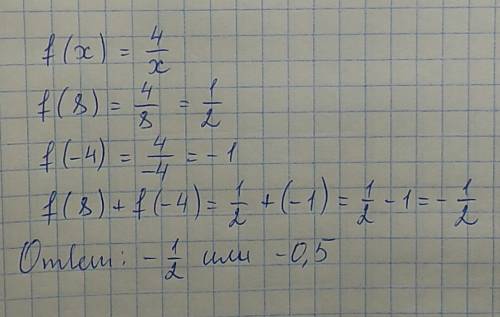 f(x) = 4/x
f(8) = 4/8 = 1/2
f(-4) = 4/-4 = -1
f(8) + f(-4) = 1/2 + (-1) = 1/2 - 1 = - 1/2
Ответ: - 1/2 или -0,5